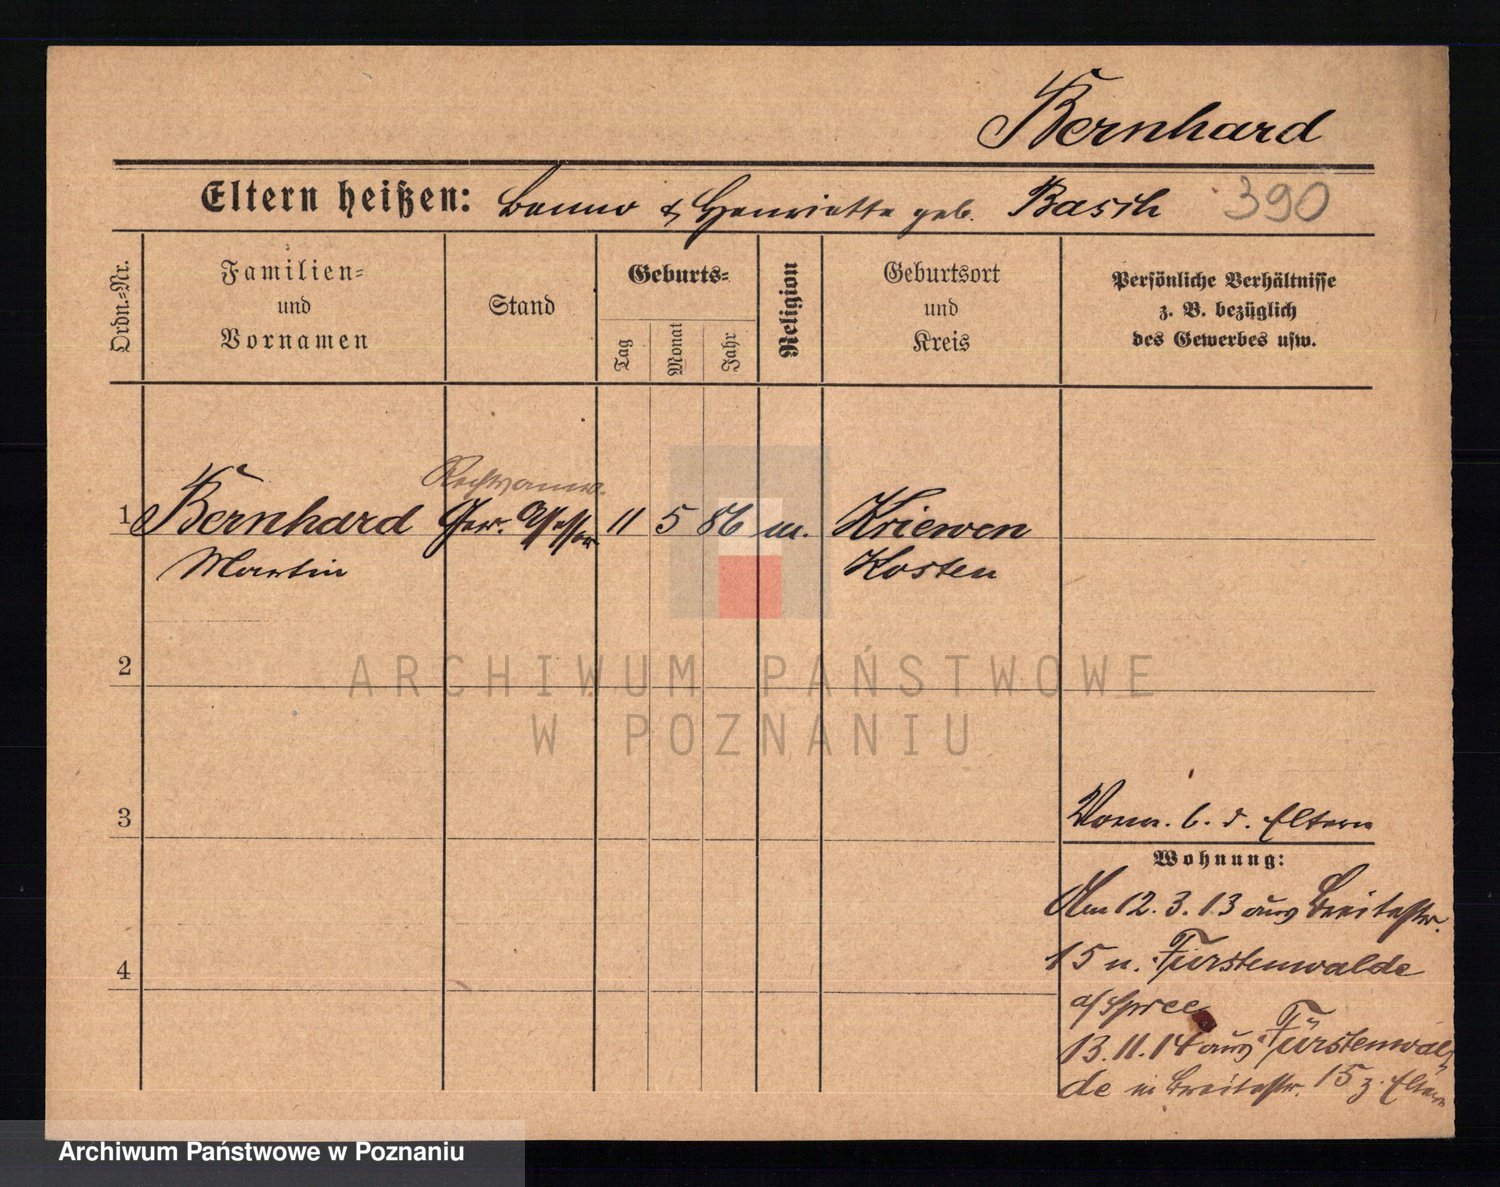 Bernhard
Eltern heißen: Benno & Henriette geb. Basch 390
Ordn.-Nr.
Familien-
und
Vornamen
Stand
Geburts-
Tag
Monat
Jahr
Religion
Geburtsort
und
Kreis
Persönliche Verhältnisse
z. B. bezüglich
des Gewerbes usw.
Rechtsanw.
1 Bernhard Ger. Assessor 11 5 86 m. Kriewen
Martin Kosten
2
ARCHIWUM PAŃSTWOWE
W POZNANIU
3
Vorm. b. d. Eltern
Wohnung:
Am 12. 3. 13 aus Breitestr.
15 n. Fürstenwalde
a/Spree
4
13. 11. 14 aus Fürstenwal
de in Breitestr. 15 z. Eltern
Archiwum Państwowe w Poznaniu